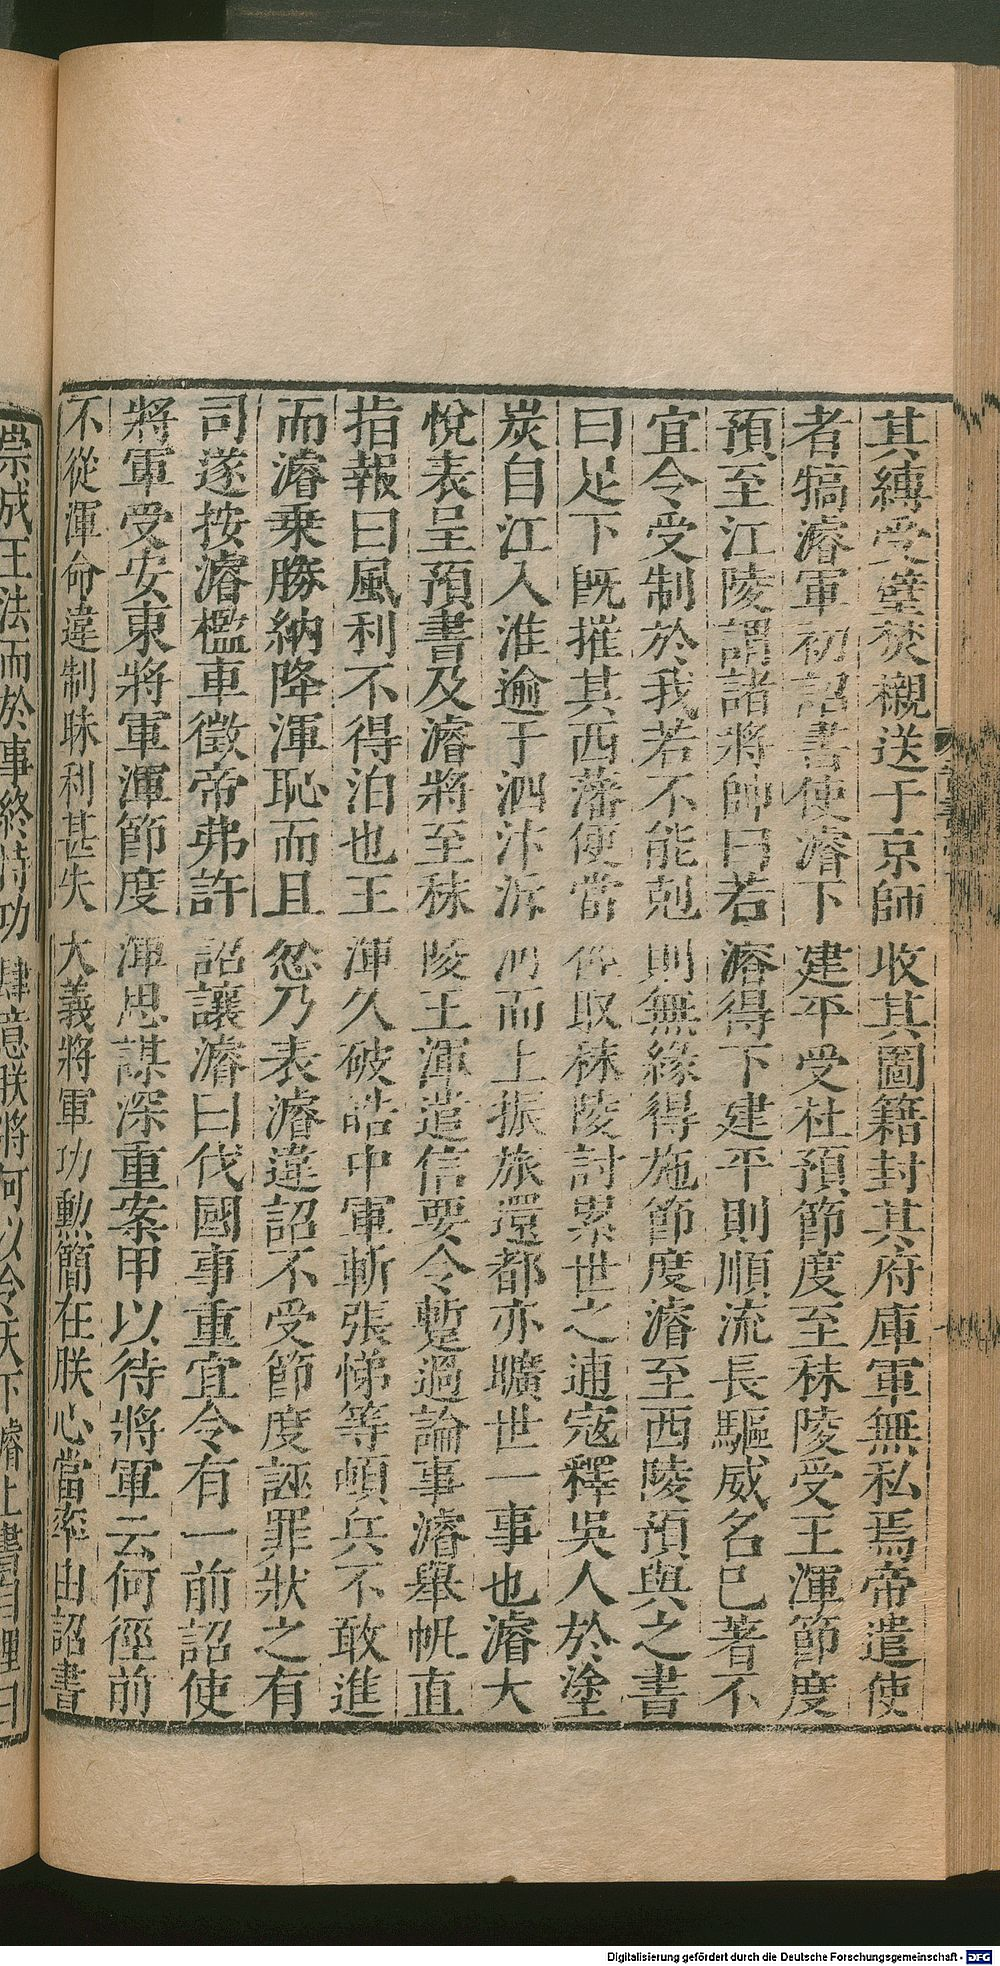 其縛受璧焚櫬送于京師收其圖籍封其府庫軍無私焉帝遣使
者犒濬軍初詔書使濬下建平受杜預節度至秣陵受王渾節度
預至江陵謂諸將帥曰若濬得下建平則順流長驅威名已著不
宜令受制於我若不能剋則無緣得施節度濬至西陵預與之書
曰足下既摧其西藩便當徑取秣陵討累世之逋寇釋吳人於塗
炭自江入淮逾于泗汴泝河而上振旅還都亦曠世一事也濬大
悅表呈預書及濬將至秣陵王渾遣信要令蹔過論事濬舉帆直
指報曰風利不得泊也王渾久破皓中軍斬張悌等頓兵不敢進
而濬乗勝納降渾恥而且忿乃表濬違詔不受節度誣罪狀之有
司遂按濬檻車徵帝弗許詔讓濬曰伐國事重宜令有一前詔使
將軍受安東將軍渾節度渾思謀深重案甲以待將軍云何徑前
不從渾命違制昧利甚失大義將軍功勳簡在朕心當率由詔書
崇成王法而於事終恃功肆意朕將何以令天下濬上書自理曰
Digitalisierung gefördert durch die Deutsche Forschungsgemeinschaft - DFG